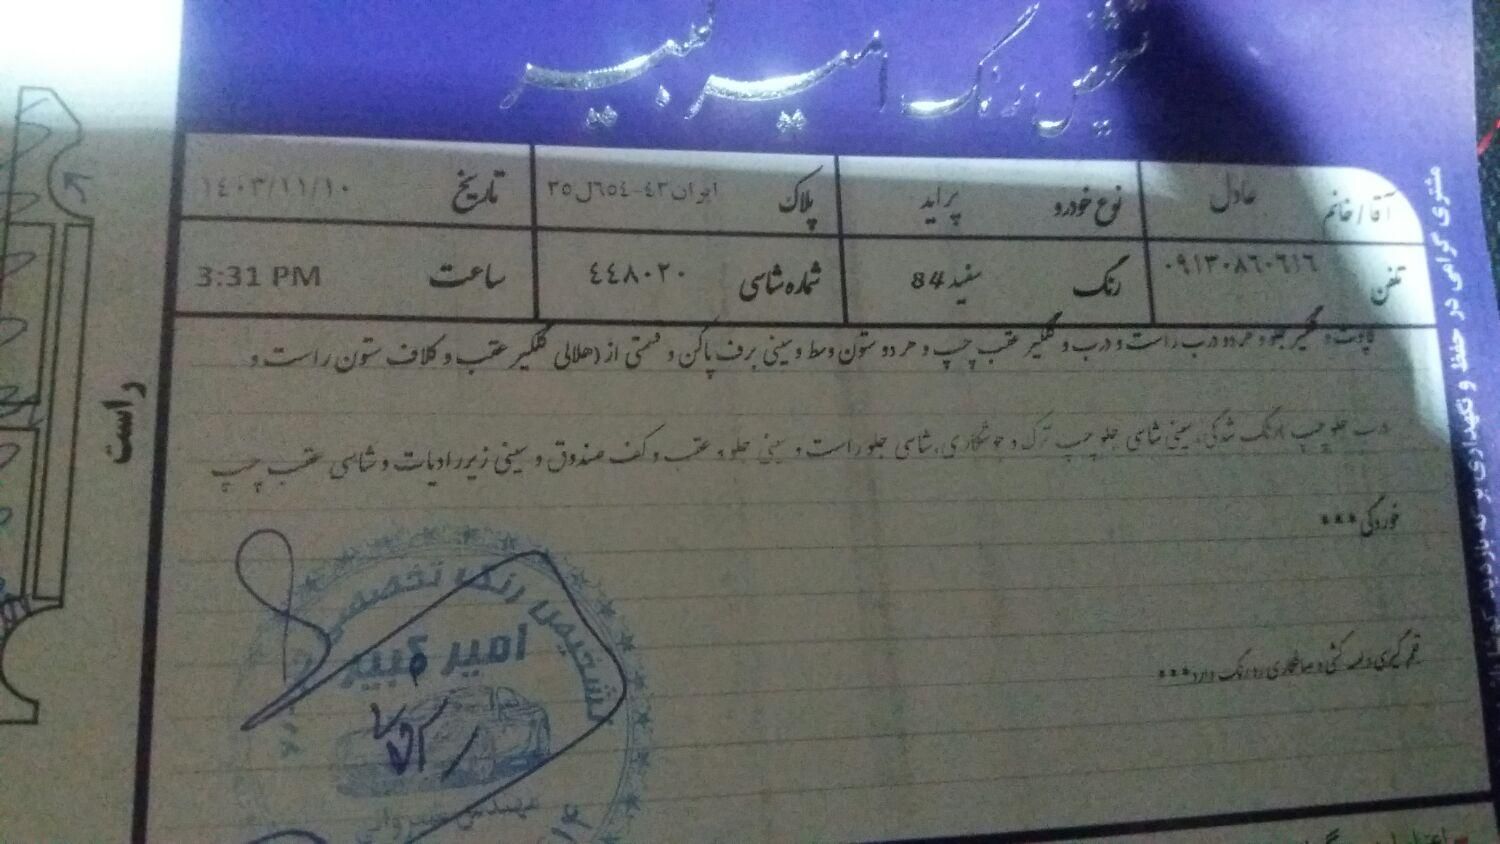 تشخیص رنگ امیرکبیر
آقا / خانم عادل نوع خودرو پراید پلاک ایران ۴۳-۶۵۴ل۳۵ تاریخ ۱۴۰۳/۱۱/۱۰
تلفن ۰۹۱۳۰۸۶۰۶۱۶ رنگ سفید 84 شماره شاسی ۴۴۸۰۲۰ ساعت 3:31 PM
کاپوت و گلگیر جلو و هر دو درب راست و درب و گلگیر عقب چپ و هر دو ستون وسط و سینی برف پاکن و قسمتی از (هلالی گلگیر عقب و کلاف ستون راست و
درب جلو چپ )رنگ شدگی. سینی شاسی جلو چپ ترک و جوشکاری. شاسی جلو راست و سینی جلو و عقب و کف صندوق و سینی زیر رادیات و شاسی عقب چپ
خوردگی***
قلم گیری و لیسه کشی و صافکاری بدون رنگ دارد***
راست
مشتری گرامی در حفظ و نگهداری برگه بازدید
تشخیص رنگ تخصصی
امیر کبیر
مهندس